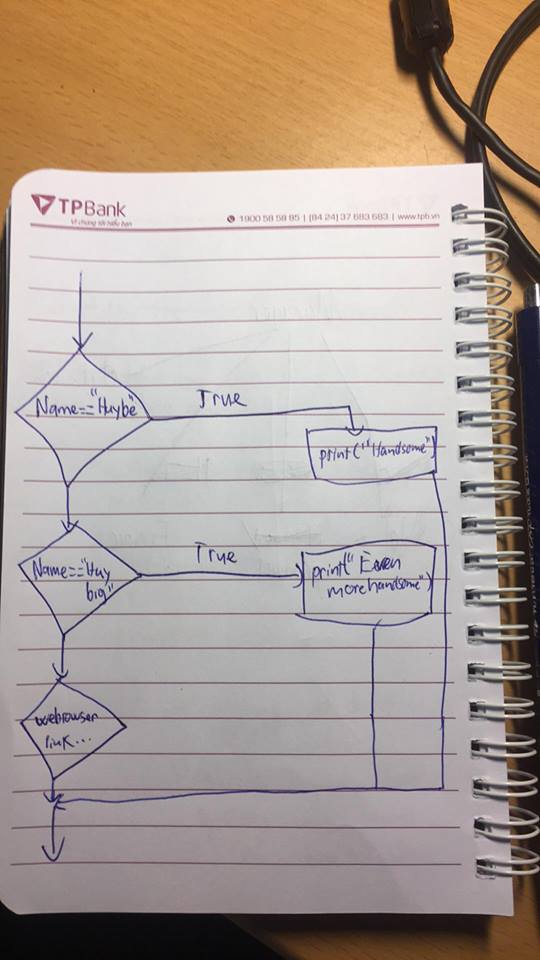 TPBank
Vì chúng tôi hiểu bạn
1900 58 58 85 | (84 24) 37 683 683 | www.tpb.vn
Name=="Huybe"
True
print("Handsome")
Name=="Huy
big"
True
print("Even
more handsome")
webrowser
link...